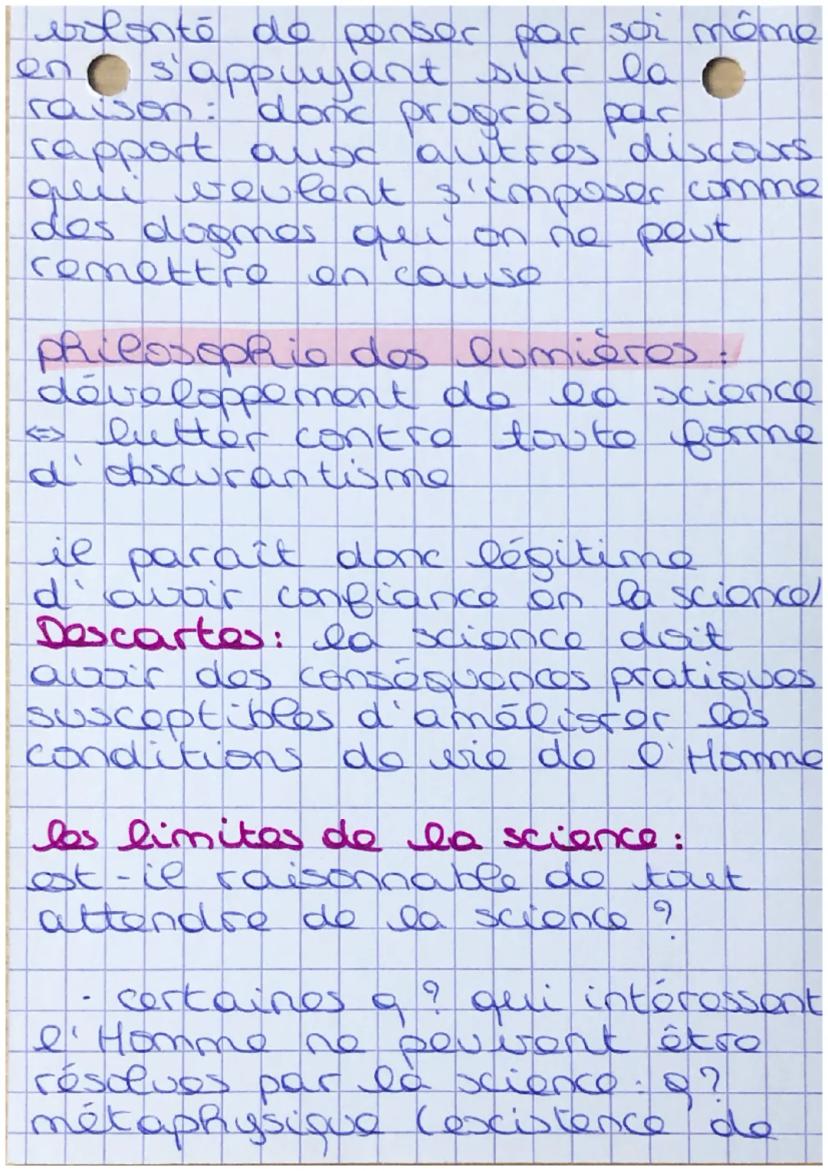 volonté de penser par soi même
en s'appuyant sur la
raison: donc progrès par
rapport aux autres discours
qui veulent s'imposer comme
des dogmes qu'on ne peut
remettre en cause
philosophie des lumières:
développement de la science
<=> lutter contre toute forme
d'obscurantisme
il paraît donc légitime
d'avoir confiance en la science/
Descartes: la science doit
avoir des conséquences pratiques
susceptibles d'améliorer les
conditions de vie de l'Homme
les limites de la science:
est-il raisonnable de tout
attendre de la science?
· certaines q? qui intéressent
l'Homme ne peuvent être
résolues par la science: q?
métaphysique (existence de